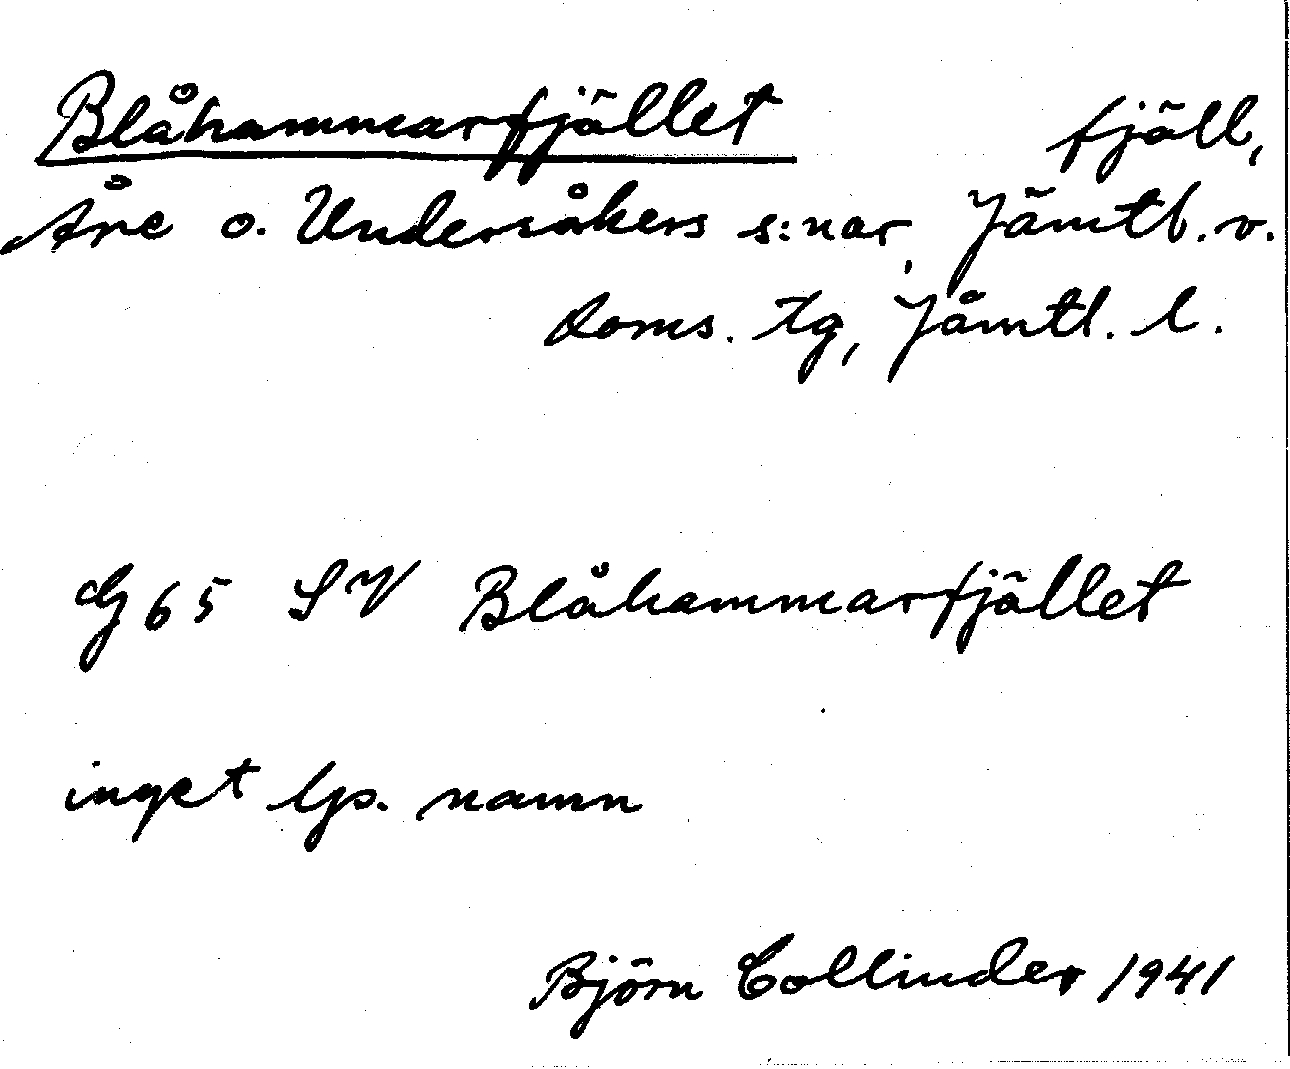 Blåhammarfjället fjäll,
Åre o. Undersåkers s:nar, Jämtl. v.
doms. tg, Jämtl. l.
G 65 SV Blåhammarfjället
inget lp. namn
Björn Collinder 1941